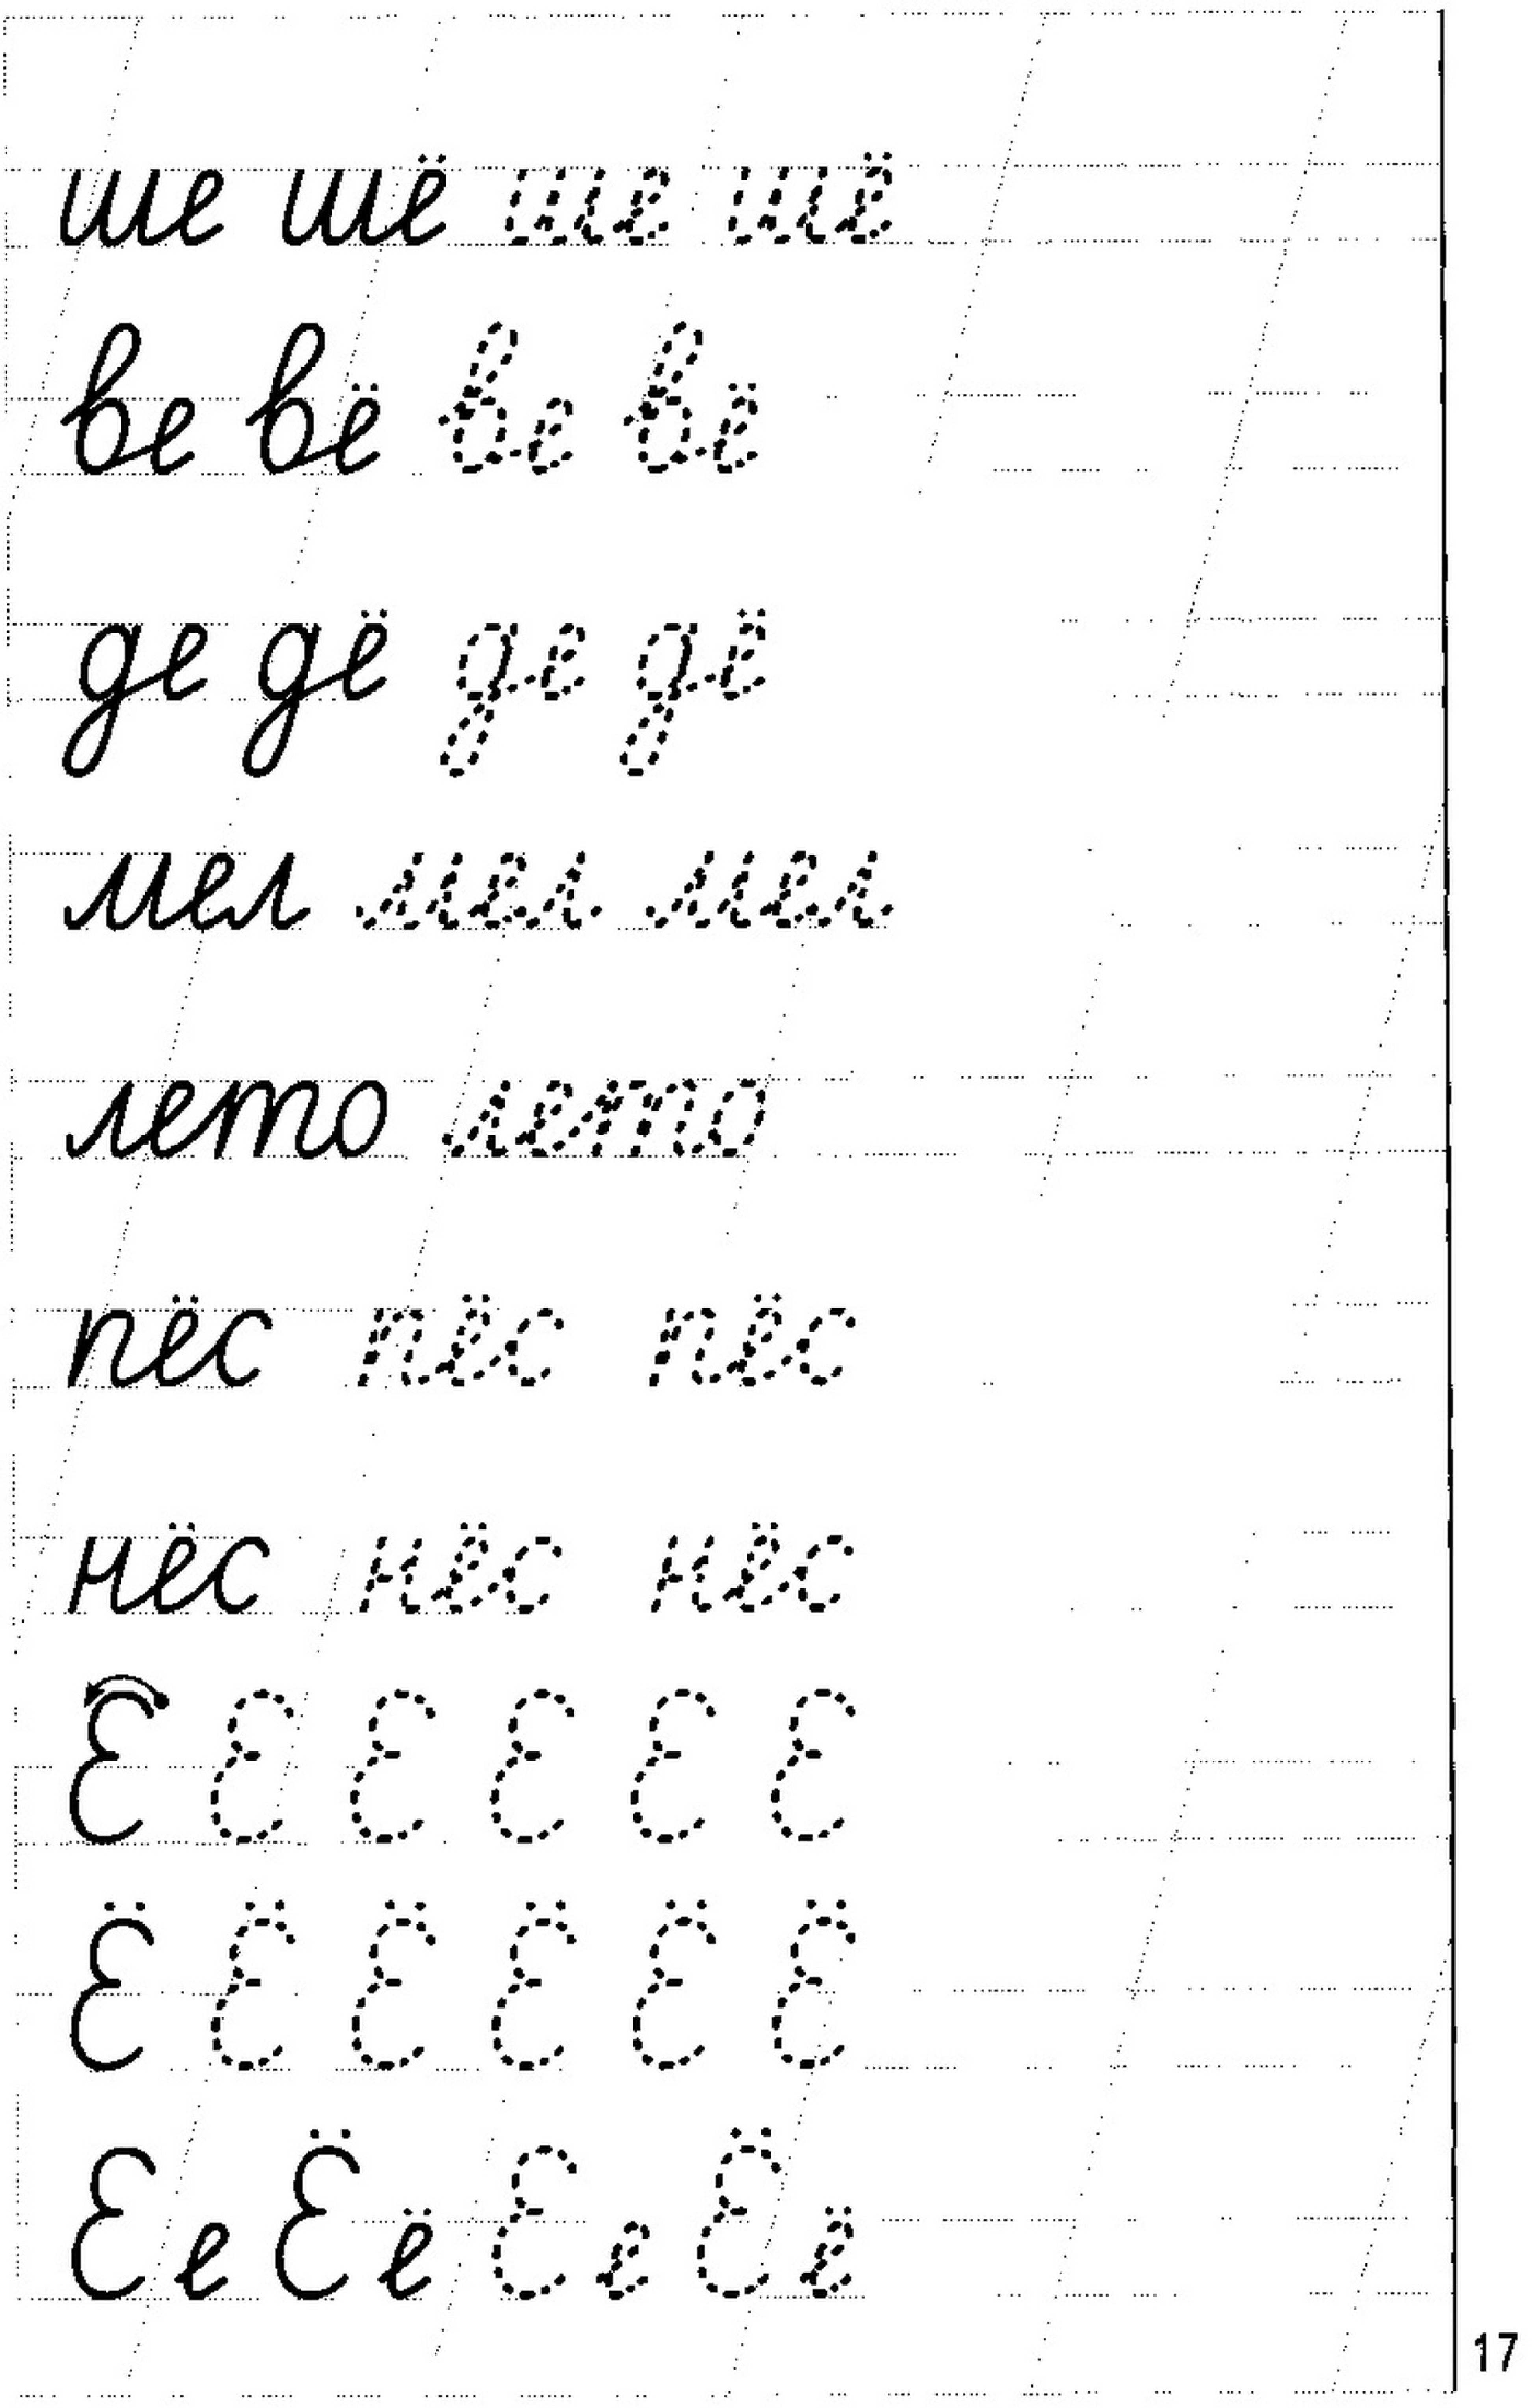 ше шё ше шё
ве вё ве вё
де дё де дё
мел мел мел
лето лето
пёс пёс пёс
нёс нёс нёс
Е Е Е Е Е Е
Ё Ё Ё Ё Ё Ё
Е е Ё ё Е е Ё ё
17